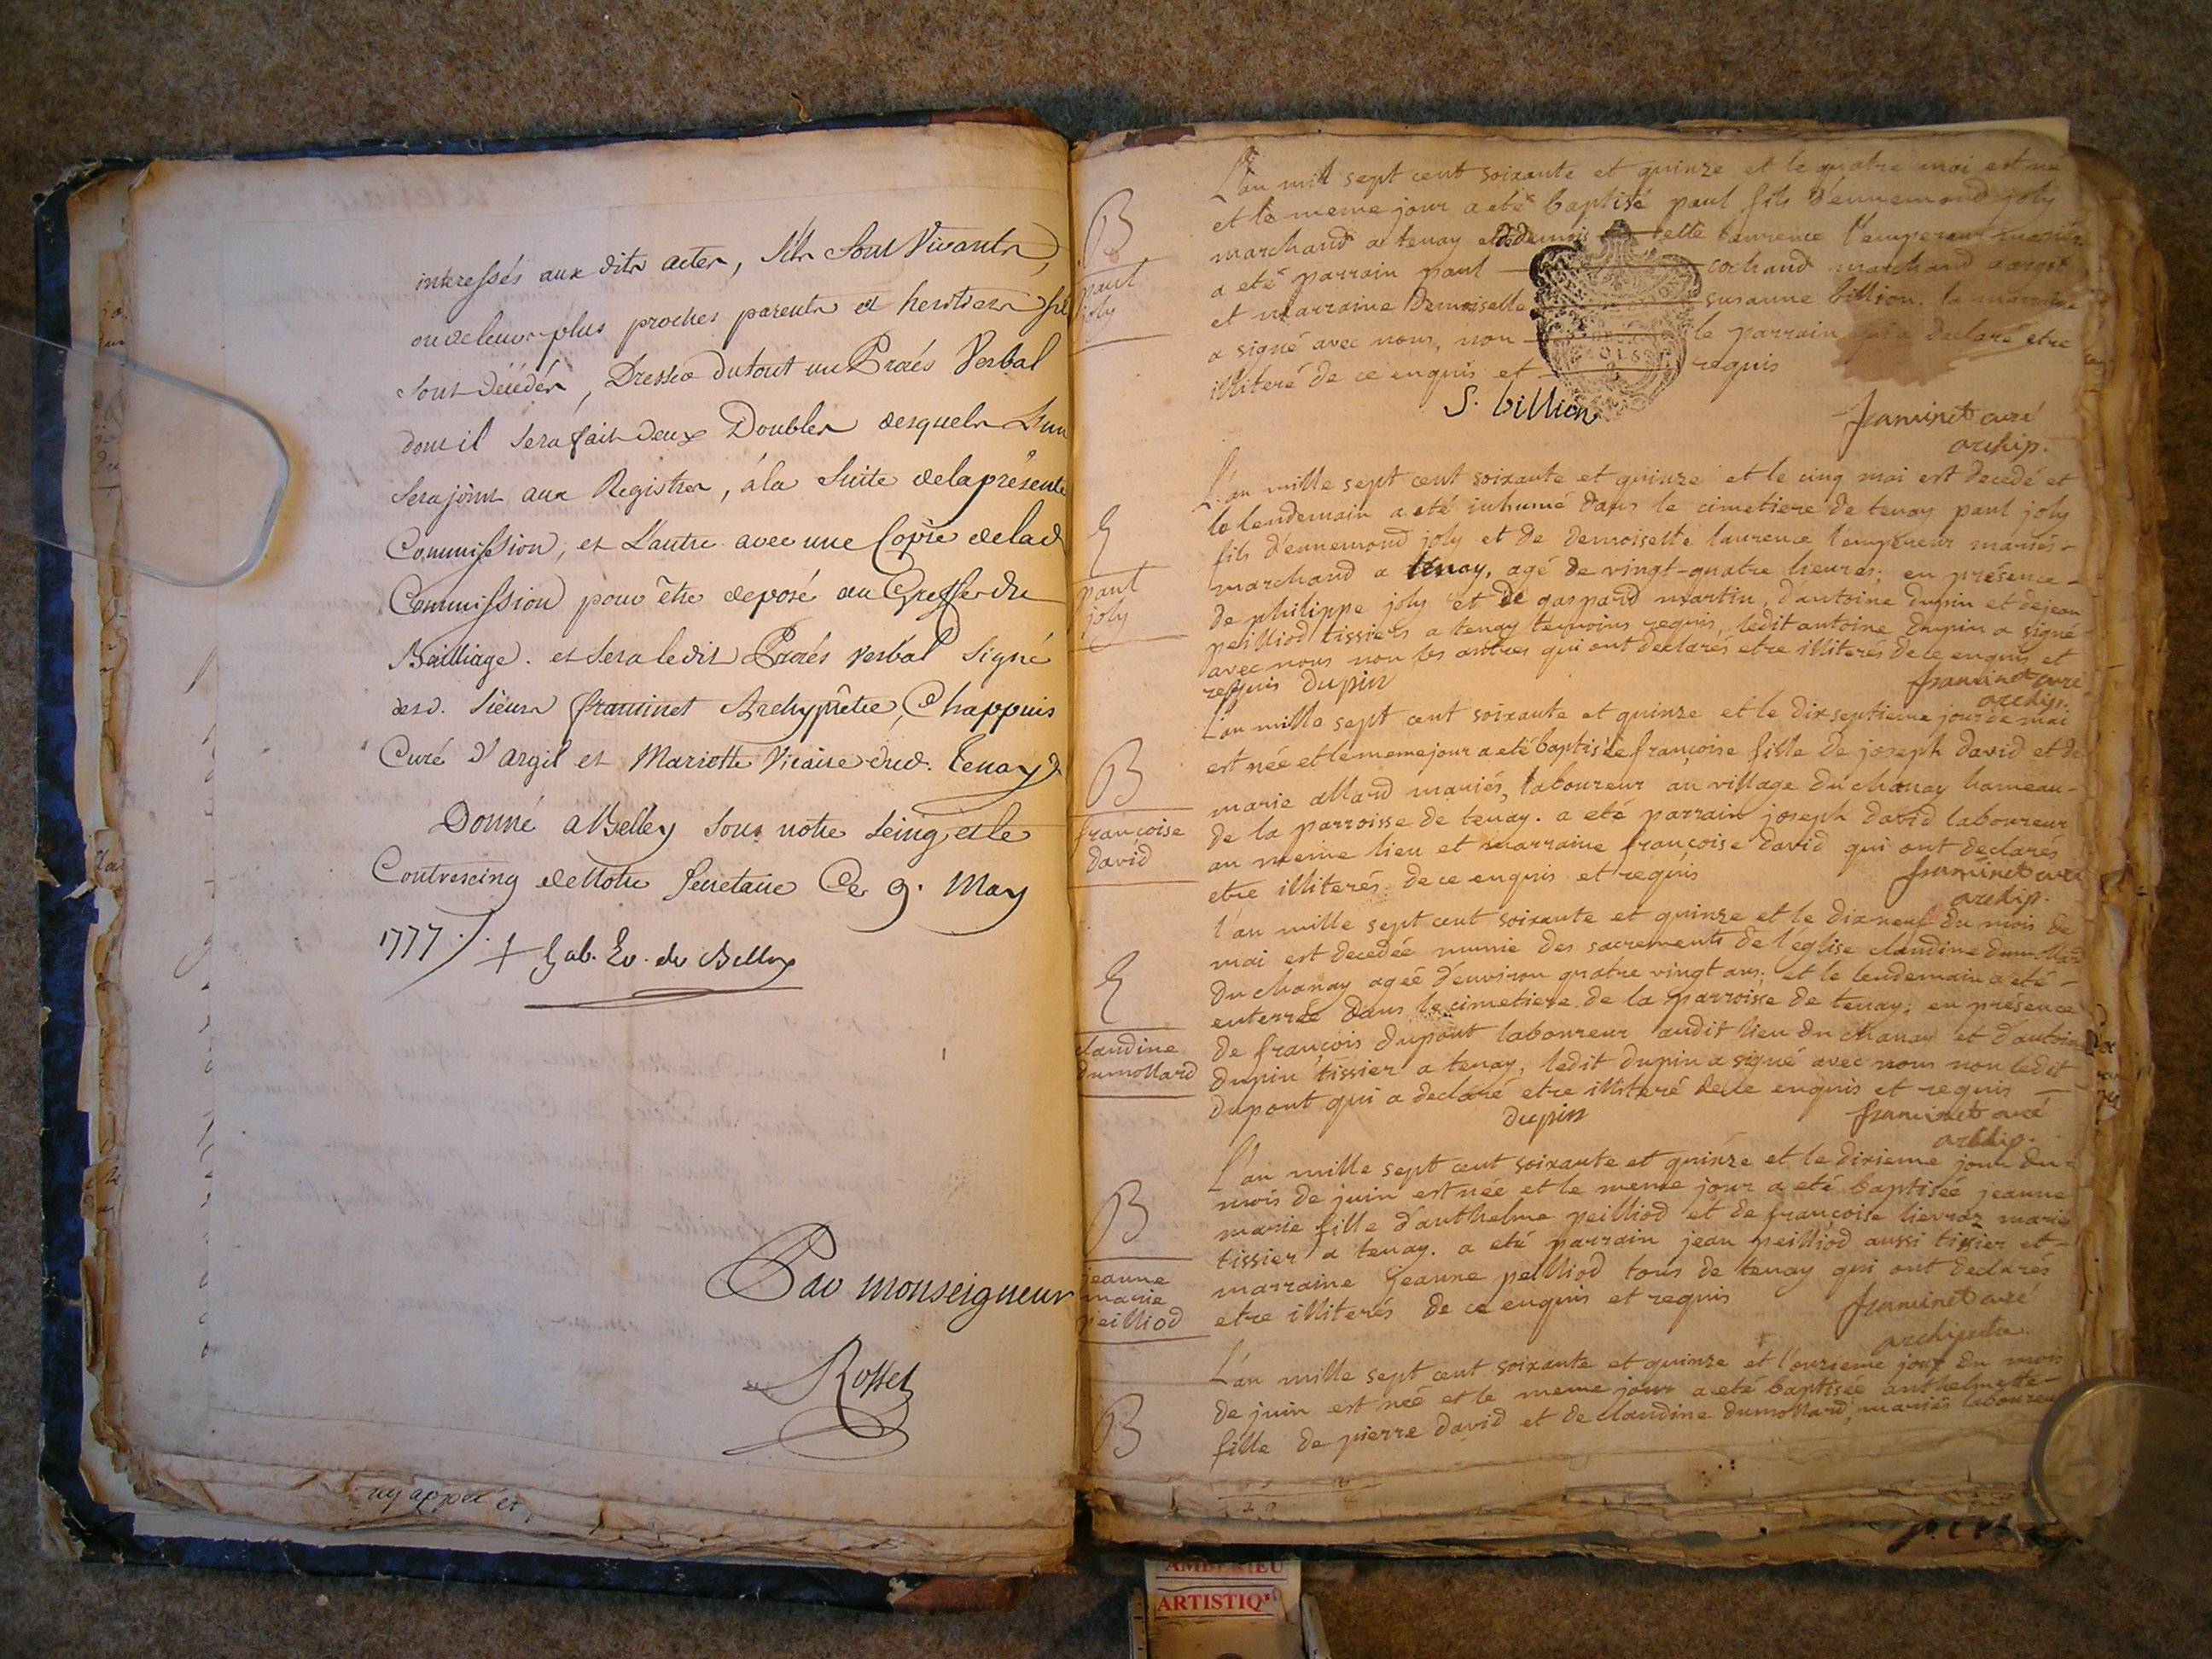 interessés aux dits actes, s'ils sont Vivants,
ou de leurs plus proches parents et heritiers s'ils
sont décédés, Dressés du tout un Procés Verbal
dont il sera fait deux Doubles desquels L'un
sera joint aux Registres, à la suite de la présente
Commission, et L'autre avec une Copie de lad.
Commission pour être deposé au Greffe du
Bailliage. et sera ledit Procés verbal signé
desd. sieurs framinet Archyprêtre, Chappuis
Curé d'argil et Mariotte Vicaire dud. tenay
Donné a Belley sous notre seing et le
Contreseing de Notre Secretaire Ce 9. May
1777 ./. + Gab. Ev. de Belley
Par monseigneur
Rosset
ny appel et
L'an mil sept cent soixante et quinze et le quatre mai est né
et le meme jour a eté baptisé paul fils d'ennemond joly
marchand a tenay et demoiselle laurence l'empereur mariés
a eté parrain paul cochand marchand a argit
et marraine demoiselle susanne billion. la marraine
a signé avec nous, non le parrain qui a declaré etre
illiteré de ce enquis et requis
S. billion
framinet curé
archip.
B
paul
joly
L'an mille sept cent soixante et quinze et le cinq mai est decedé et
le lendemain a eté inhumé dans le cimetiere de tenay paul joly
fils d'ennemond joly et de demoiselle laurence l'empereur mariés
marchand a tenay, agé de vingt-quatre heures; en présence
de philippe joly et de gaspard martin, d'antoine dupin et de jean
peilliod tissiers a tenay temoins requis, ledit antoine dupin a signé
avec nous non les autres qui ont declarés etre illiterés de ce enquis et
requis dupin
framinet curé
archip.
paul
joly
L'an mille sept cent soixante et quinze et le dixseptieme jour de mai
est née et le meme jour a eté baptisée françoise fille de joseph david et de
marie allard mariés, laboureur au village du chanay hameau
de la parroisse de tenay. a eté parrain joseph david laboureur
au meme lieu et marraine françoise david qui ont declarés
etre illiterés de ce enquis et requis
framinet curé
archip.
B
françoise
david
l'an mille sept cent soixante et quinze et le dix neuf du mois de
mai est decedée munie des sacrements de l'église claudine dumollard
du chanay agée d'environ quatre vingt ans. et le lendemain a eté
enterrée dans le cimetiere de la parroisse de tenay; en présence
de françois dupont laboureur audit lieu du chanay et d'antoine
dupin tissier a tenay, ledit dupin a signé avec nous non ledit
dupont qui a declaré etre illiteré de ce enquis et requis
dupin
framinet curé
archip.
claudine
dumollard
L'an mille sept cent soixante et quinze et le dixieme jour du
mois de juin est née et le meme jour a eté baptisée jeanne
marie fille d'anthelme peilliod et de françoise lievroz mariés
tissier a tenay. a eté parrain jean peilliod aussi tissier et
marraine jeanne peilliod tous de tenay qui ont declarés
etre illiterés de ce enquis et requis
framinet curé
archipretre.
B
jeanne
marie
peilliod
L'an mille sept cent soixante et quinze et l'onzieme jour du mois
de juin est née et le meme jour a eté baptisée anthelmette
fille de pierre david et de claudine dumollard, mariés laboureur
B
AMBERIEU
ARTISTIQ